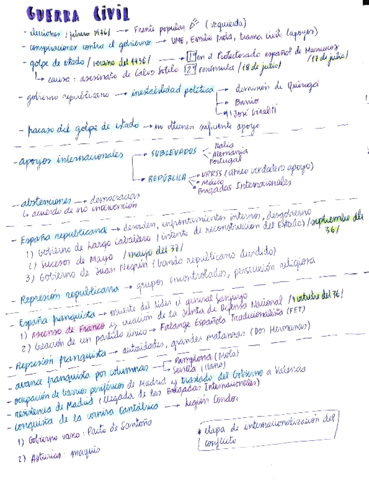 GUERRA CIVIL
- elecciones /febrero 1936/ → Frente popular (izquierda)
- conspiraciones contra el gobierno → UME, Emilio Mola, trama civil (apoyos)
- golpe de estado /verano del 1936/ → 1º en el Protectorado español de Marruecos /17 de julio/
↳ causa: asesinato de Calvo Sotelo 2º península /18 de julio/
- gobierno republicano → inestabilidad política → dimisión de Quiroga
→ Barrio
→ José Giral
- fracaso del golpe de estado → no obtienen suficiente apoyo
- apoyos internacionales → SUBLEVADOS → Italia
Alemania
Portugal
→ REPÚBLICA → URSS (único verdadero apoyo)
México
Brigadas Internacionales
- abstenciones → democracias
↳ acuerdo de no intervención
- España republicana → división, enfrentamientos internos, desgobierno
1) Gobierno de Largo Caballero (intento de reconstrucción del Estado) /septiembre del 36/
2) Sucesos de Mayo /mayo del 37/
3) Gobierno de Juan Negrín (bando republicano dividido)
- Represión republicana → grupos incontrolados, persecución religiosa
- España franquista → muerte del líder el general Sanjurjo
1) Ascenso de Franco y creación de la Junta de Defensa Nacional /1 octubre del 36/
2) Creación de un partido único → Falange Española Tradicionalista (FET)
- Represión franquista → autoridades, grandes matanzas (Dos Hermanas)
- avance franquista por columnas → Pamplona (Mola)
→ Sevilla
- ocupación de barrios periféricos de Madrid y traslado del Gobierno a Valencia
- resistencia de Madrid (llegada de las Brigadas Internacionales)
- conquista de la cornisa Cantábrica → Legión Condor
1) Gobierno vasco: Pacto de Santoña
2) Asturias: maquis
* etapa de internacionalización del conflicto